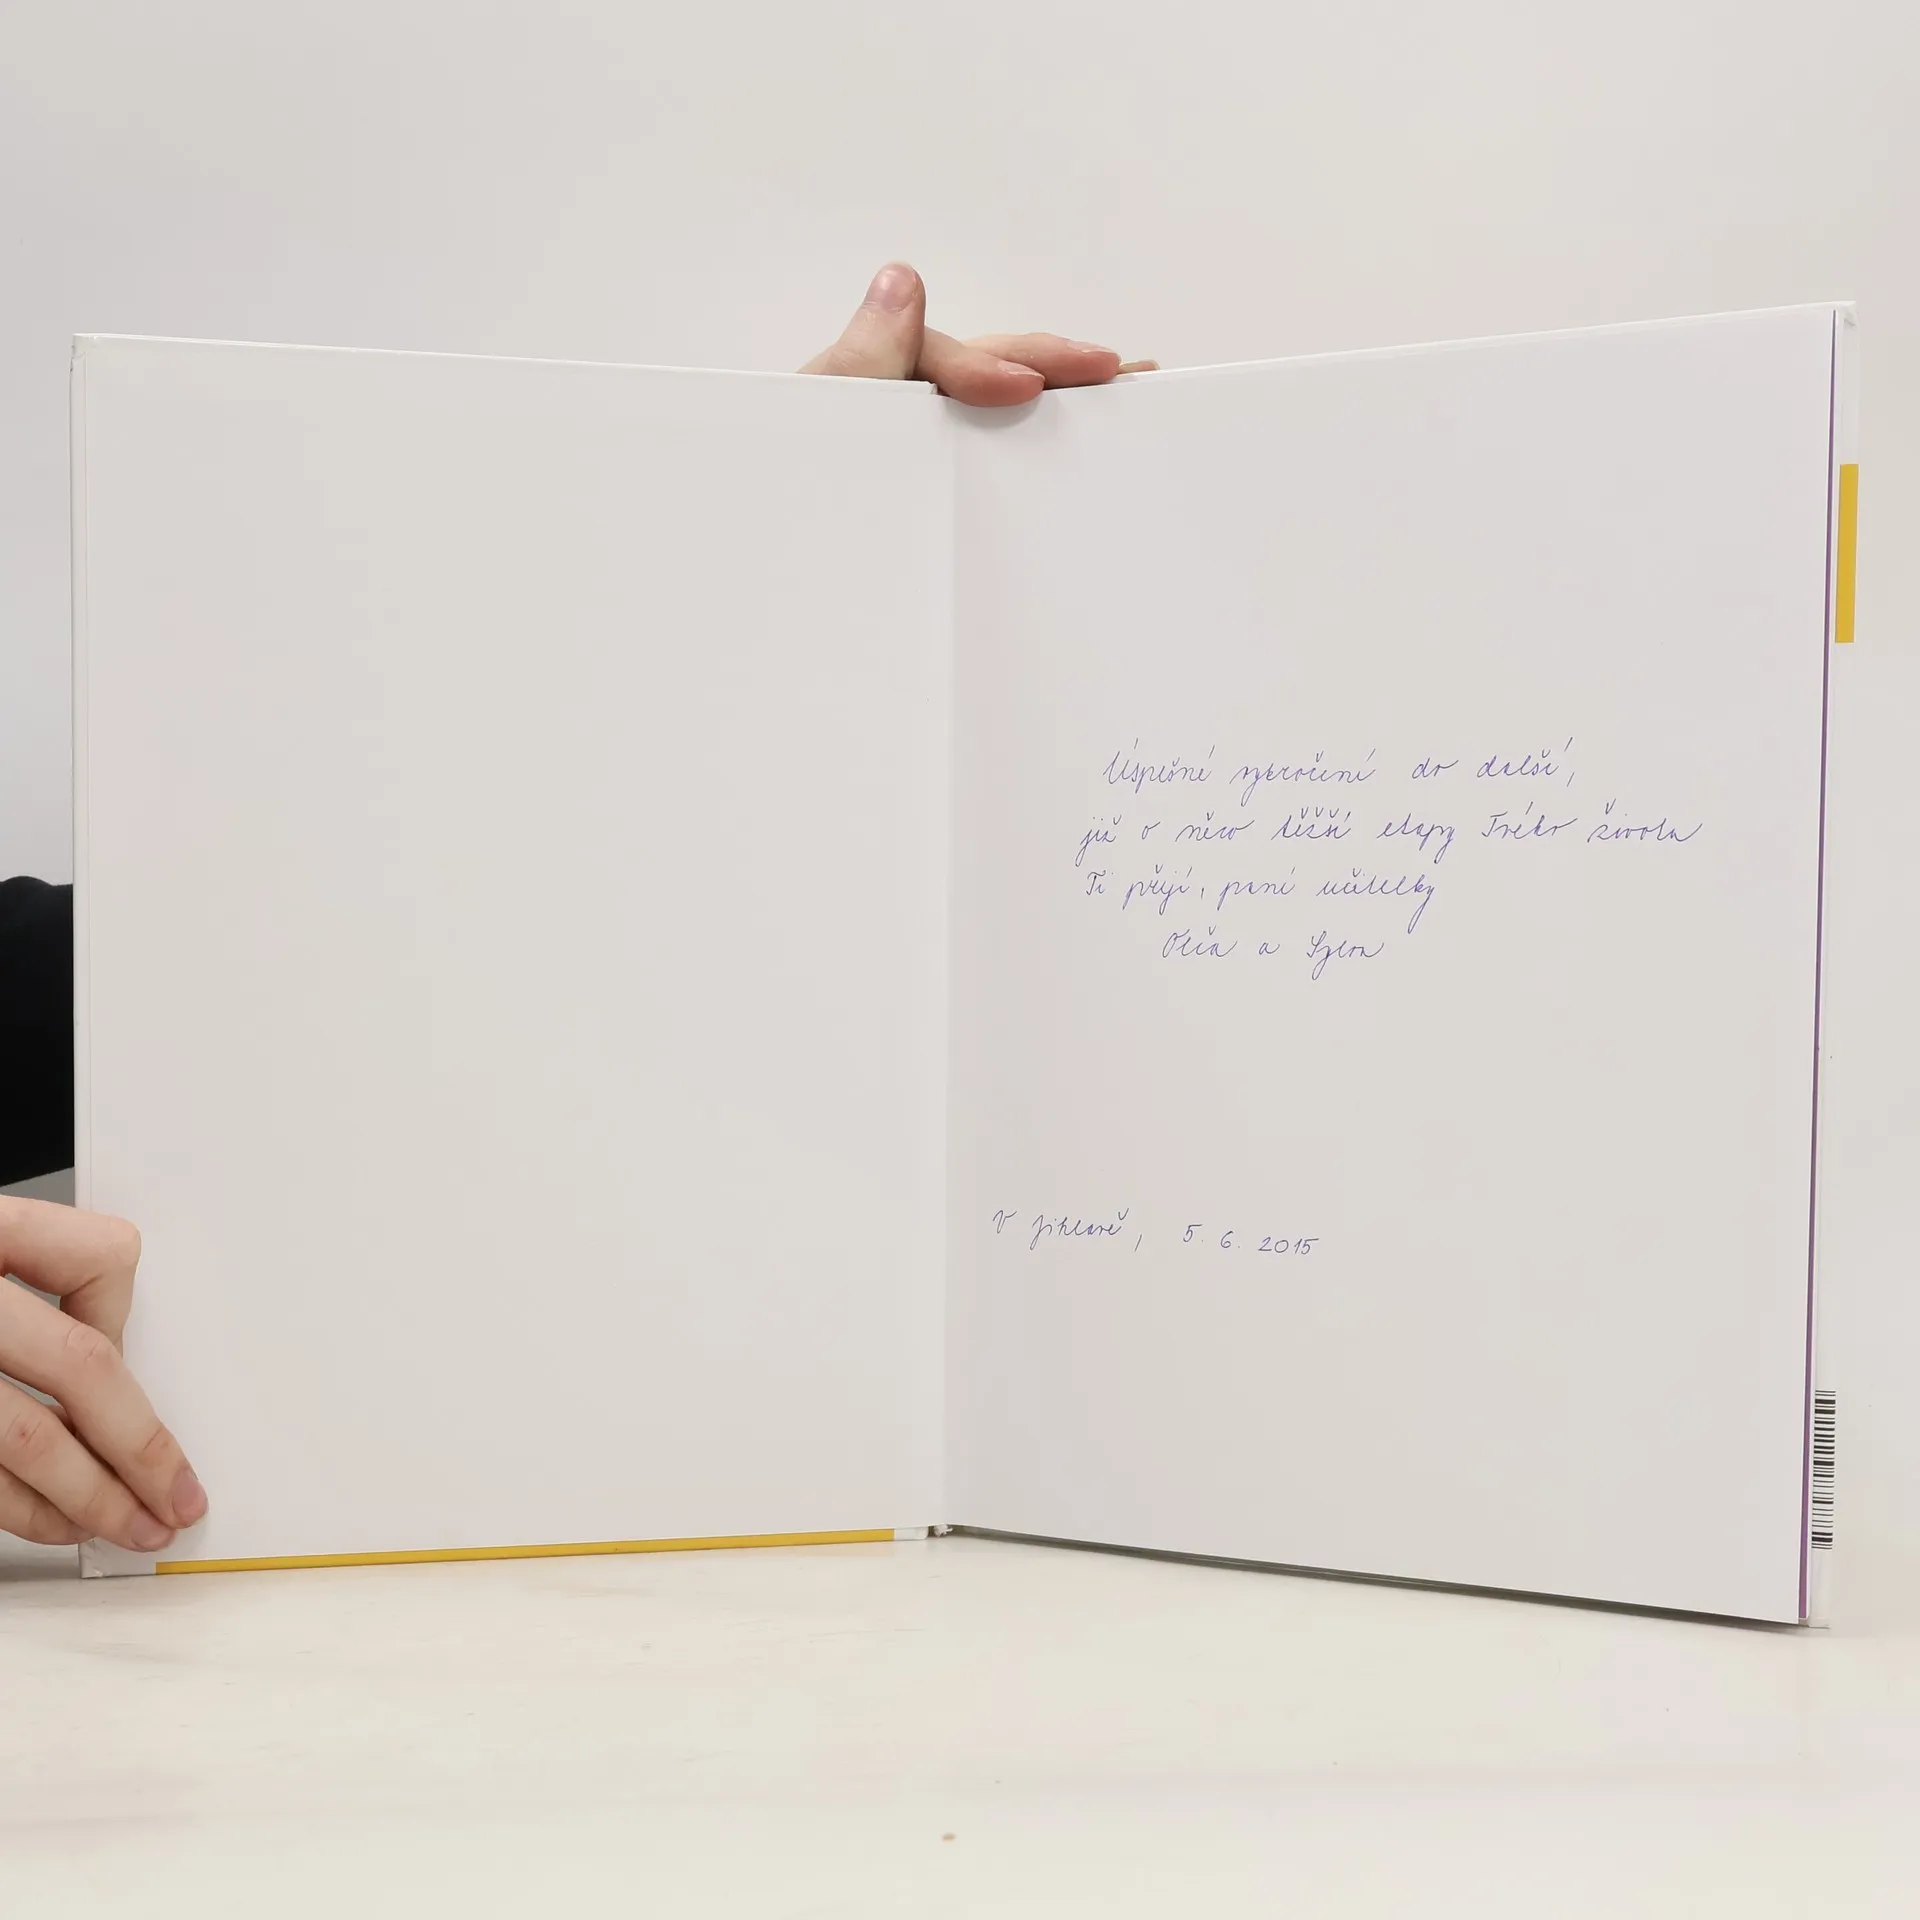 Úspěšné vykročení do další,
již o něco těžší etapy Tvého života
Ti přejí, paní učitelky
Olča a Sylva
V Jihlavě, 5. 6. 2015